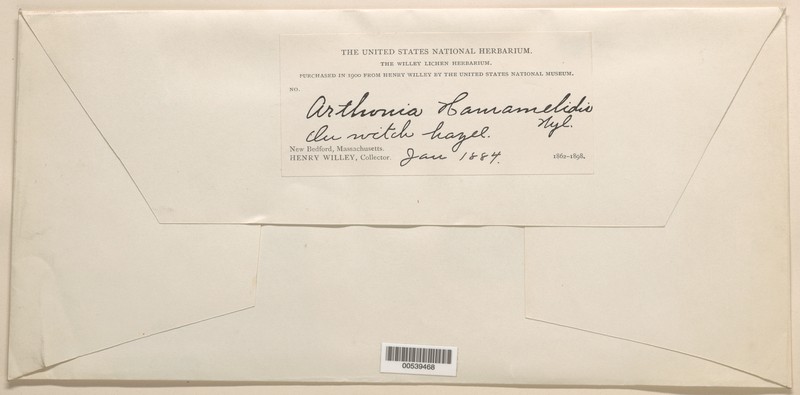 THE UNITED STATES NATIONAL HERBARIUM.
THE WILLEY LICHEN HERBARIUM.
PURCHASED IN 1900 FROM HENRY WILLEY BY THE UNITED STATES NATIONAL MUSEUM.
NO.
Arthonia Hamamelidis
Nyl.
On witch hazel.
New Bedford, Massachusetts.
HENRY WILLEY, Collector. Jan 1884. 1862–1898.
00539468